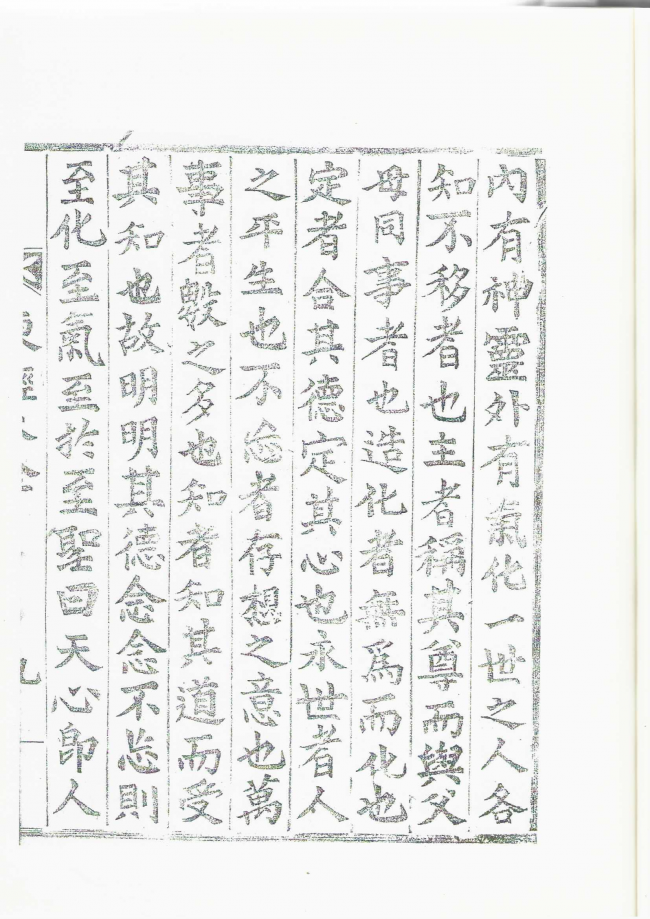 內有神靈外有氣化一世之人各
知不移者也主者稱其尊而與父
母同事者也造化者無爲而化也
定者合其德定其心也永世者人
之平生也不忘者存想之意也萬
事者數之多也知者知其道而受
其知也故明明其德念念不忘則
至化至氣至於至聖曰天心卽人